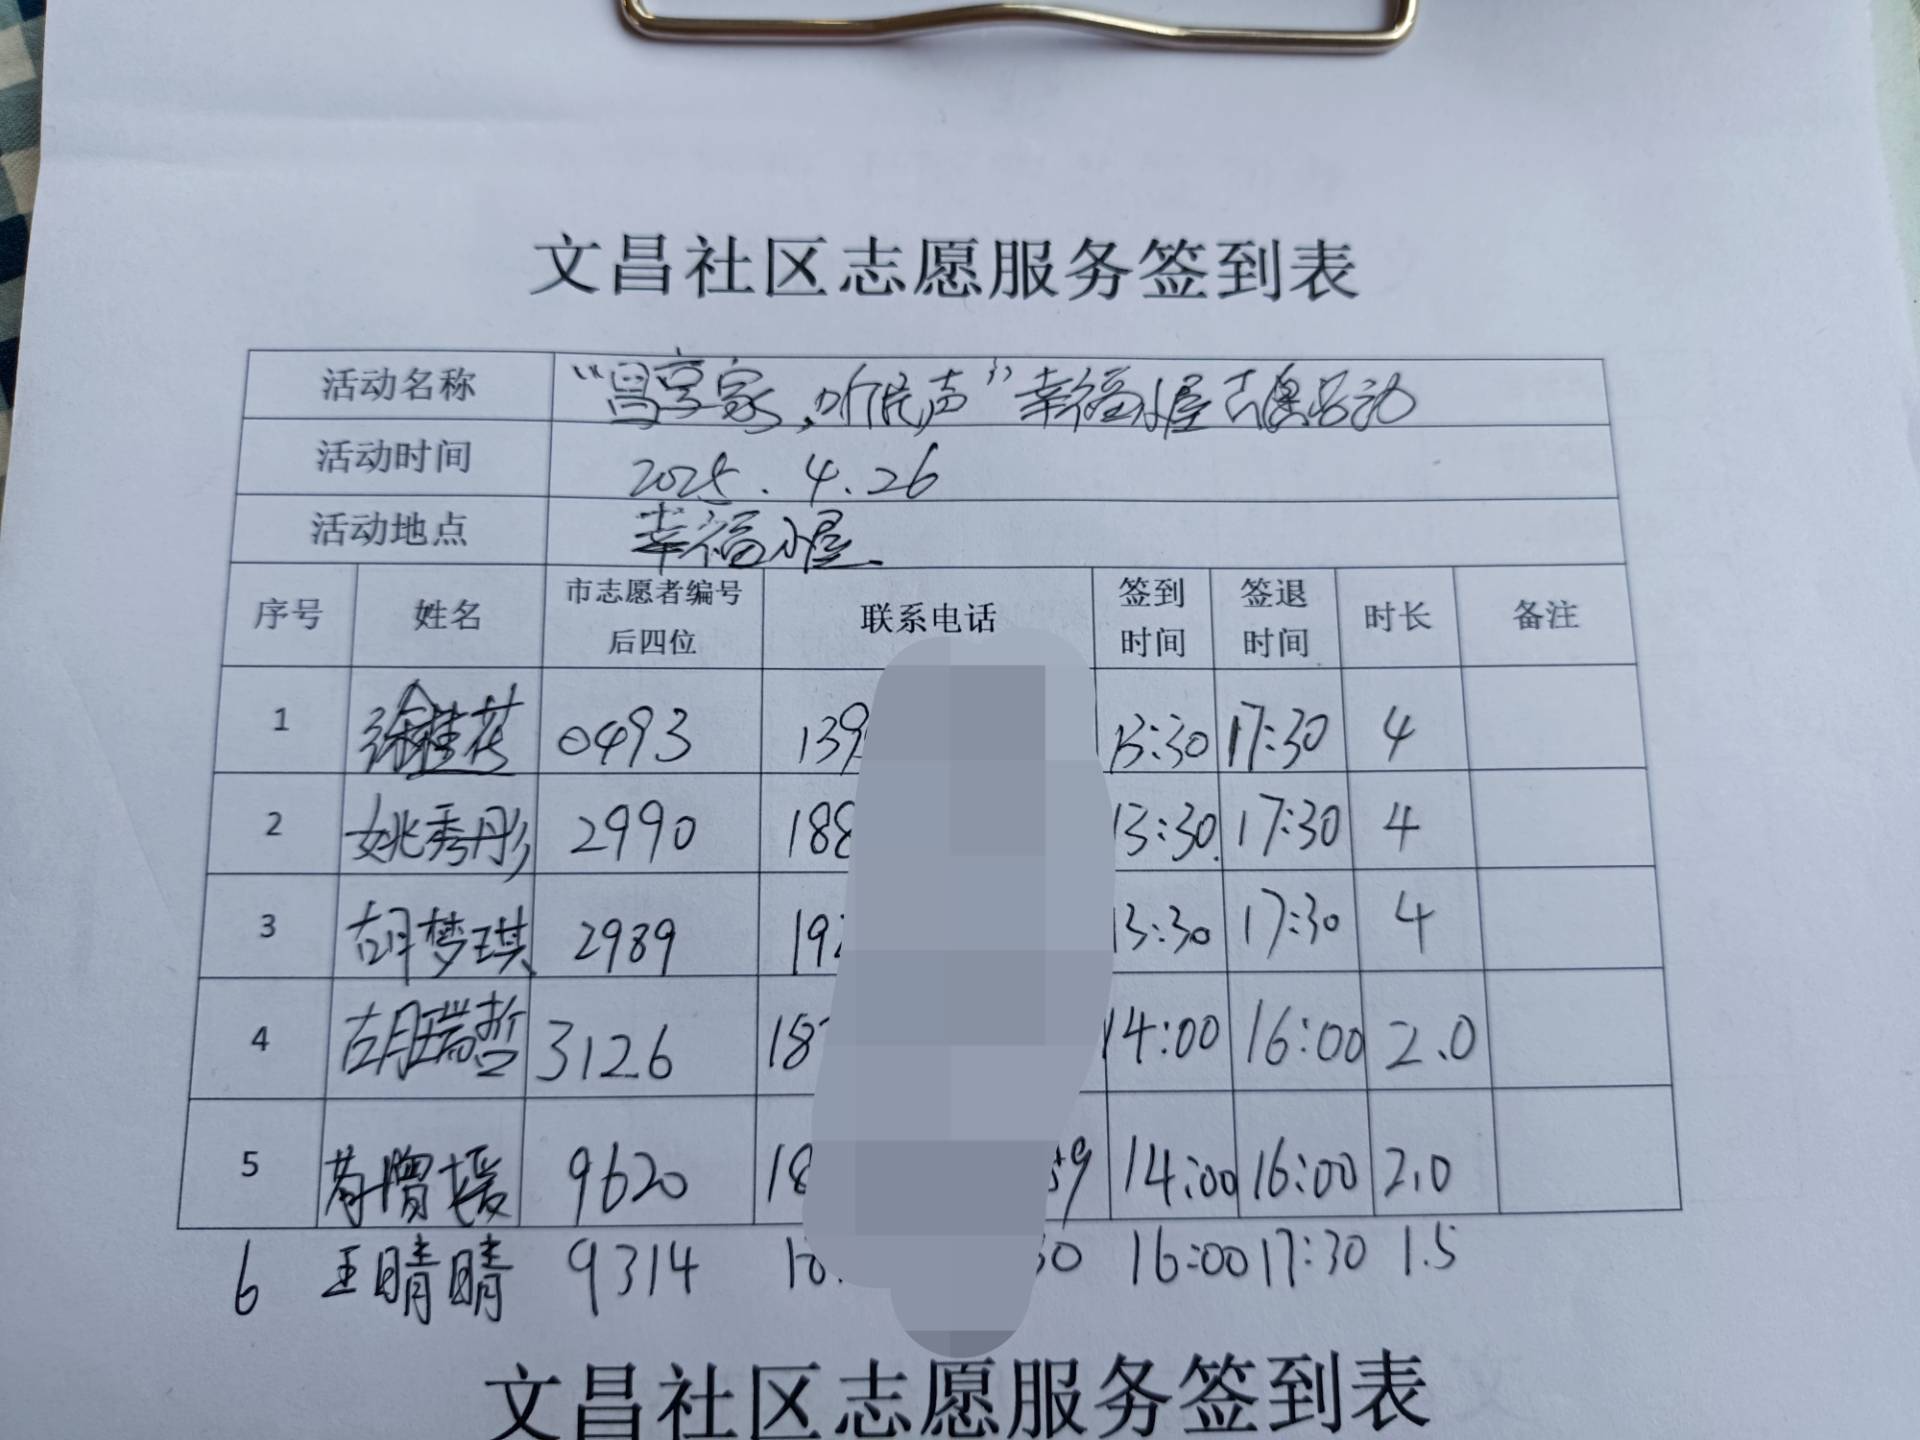 文昌社区志愿服务签到表
活动名称 “昌享家,听民声”幸福小屋志愿活动
活动时间 2025.4.26
活动地点 幸福小屋
序号 姓名 市志愿者编号后四位 联系电话 签到时间 签退时间 时长 备注
1 徐桂花 0493 139 13:30 17:30 4
2 姚秀彤 2990 188 13:30 17:30 4
3 胡梦琪 2989 192 13:30 17:30 4
4 胡瑞哲 3126 187 14:00 16:00 2.0
5 9620 18 59 14:00 16:00 2.0
6 王晴晴 9314 30 16:00 17:30 1.5
文昌社区志愿服务签到表